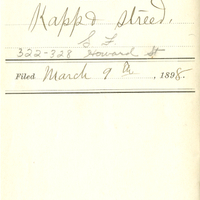 Kapp & Streed.
S F
322-328 Howard St
Filed March 9th, 1898.